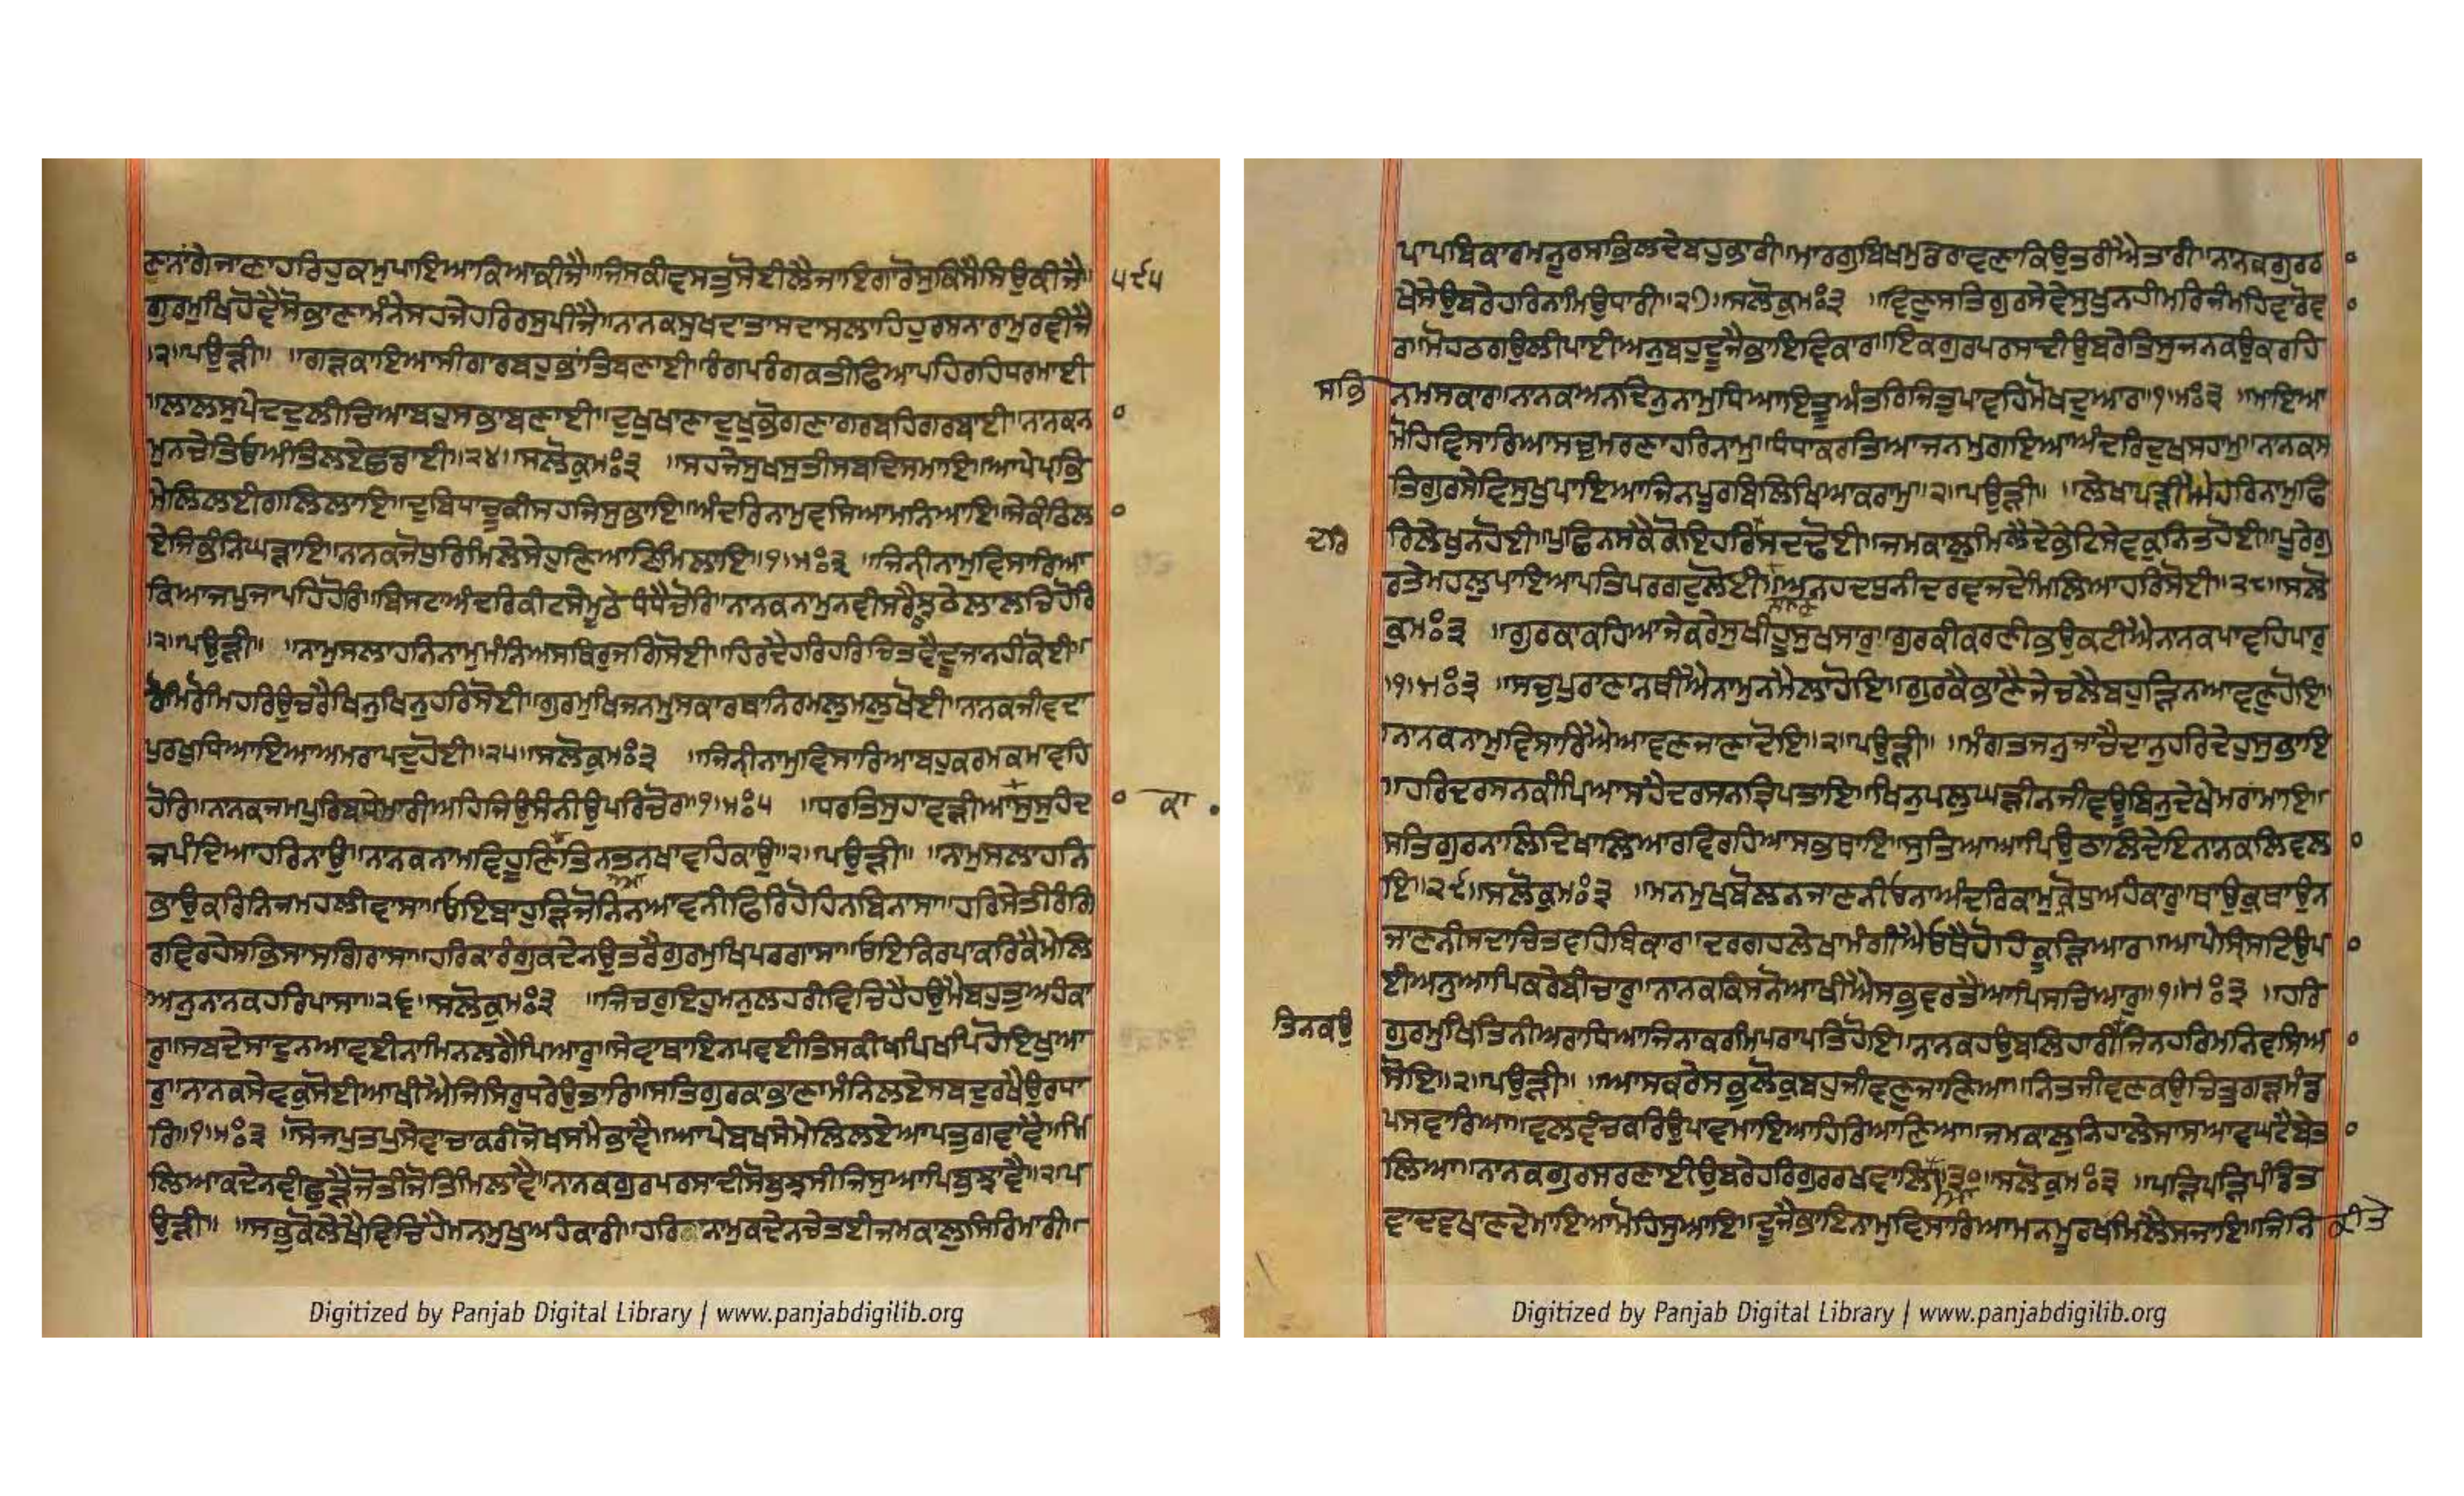 ਣਨਾਗੇਜਾਣਾਹਰਿਹੁਕਮੁਪਾਇਆਕਿਆਕੀਜੈ॥ਜਿਸਕੀਵਸਤੁਸੋਈਲੈਜਾਇਗਾਰੋਸੁਕਿਸੈਸਿਉਕੀਜੈ॥ ੫੯੫
ਗੁਰਮੁਖਿਹੋਵੈਸੋਭਾਣਾਮੰਨੇਸਹਜੇਹਰਿਰਸੁਪੀਜੈ॥ਨਾਨਕਸੁਖਦਾਤਾਸਦਾਸਲਾਹਿਹੁਰਸਨਾਰਾਮੁਰਵੀਜੈ
੨॥ਪਉੜੀ॥ ॥ਗੜਕਾਇਆਸੀਗਾਰਬਹੁਭਾਂਤਿਬਣਾਈ॥ਰੰਗਪਰੰਗਕਤੀਫਿਆਪਹਿਰਹਿਧਰਮਾਈ
॥ਲਾਲਸੁਪੇਦਦੁਲੀਚਿਆਬਹੁਸਭਾਬਣਾਈ॥ਦੁਖੁਖਾਣਾਦੁਖੁਭੋਗਣਾਗਰਬਹਿਗਰਬਾਈ॥ਨਾਨਕਨਾ
ਮੁਨਚੇਤਿਓਅੰਤਿਲਏਛਡਾਈ॥੨੪॥ਸਲੋਕੁਮਃ੩ ॥ਸਹਜੇਸੁਖਸੁਤੀਸਬਦਿਸਮਾਇ॥ਆਪੇਪ੍ਰਭਿ
ਮੇਲਿਲਈਗਲਿਲਾਇ॥ਦੁਬਿਧਾਚੂਕੀਸਹਜਿਸੁਭਾਇ॥ਅੰਦਰਿਨਾਮੁਵਸਿਆਮਨਿਆਇ॥ਸੇਕੰਠਿਲਾ
ਏਜਿਭੰਨਿਘੜਾਇ॥ਨਾਨਕਜੋਧੁਰਿਮਿਲੇਸੇਹੁਣਿਆਣਿਮਿਲਾਇ॥੧॥ਮਃ੩ ॥ਜਿਨੀਨਾਮੁਵਿਸਾਰਿਆ
ਕਿਆਜਪੁਜਾਪਹਿਹੋਰਿ॥ਬਿਸਟਾਅੰਦਰਿਕੀਟਸੇਮੁਠੇਧੰਧੈਚੋਰਿ॥ਨਾਨਕਨਾਮੁਨਵੀਸਰੈਝੂਠੇਲਾਲਚਿਹੋਰਿ
॥੨॥ਪਉੜੀ॥ ॥ਨਾਮੁਸਲਾਹਨਿਨਾਮੁਮੰਨਿਅਸਥਿਰੁਜਗਿਸੋਈ॥ਹਿਰਦੈਹਰਿਹਰਿਚਿਤਵੈਦੂਜਾਨਹੀਕੋਈ॥
ਰੋਮਿਰੋਮਿਹਰਿਉਚਰੈਖਿਨੁਖਿਨੁਹਰਿਸੋਈ॥ਗੁਰਮੁਖਿਜਨਮੁਸਕਾਰਥਾਨਿਰਮਲੁਮਲੁਖੋਈ॥ਨਾਨਕਜੀਵਦਾ
ਪੁਰਖੁਧਿਆਇਆਅਮਰਾਪਦੁਹੋਈ॥੨੫॥ਸਲੋਕੁਮਃ੩ ॥ਜਿਨੀਨਾਮੁਵਿਸਾਰਿਆਬਹੁਕਰਮਕਮਾਵਹਿ
ਹੋਰਿ॥ਨਾਨਕਜਮਪੁਰਿਬਧੇਮਾਰੀਅਹਿਜਿਉਸੰਨੀਉਪਰਿਚੋਰ॥੧॥ਮਃ੫ ॥ਧਰਤਿਸੁਹਾਵੜੀਆਸੁਸੁਹੰਦਾ ਕਾ
ਜਪੰਦਿਆਹਰਿਨਾਉ॥ਨਾਨਕਨਾਮਵਿਹੂਣਿਤਿਨਤਨਖਾਵਹਿਕਾਉ॥੨॥ਪਉੜੀ॥ ॥ਨਾਮੁਸਲਾਹਨਿ
ਭਾਉਕਰਿਨਿਜਮਹਲੀਵਾਸਾ॥ਓਇਬਾਹੁੜਿਜੋਨਿਨਆਵਨੀਫਿਰਿਹੋਹਿਨਬਿਨਾਸਾ॥ਹਰਿਸੇਤੀਰੰਗਿ
ਰਵਿਰਹੇਸਭਿਸਾਸਗਿਰਾਸਾ॥ਹਰਿਕਾਰੰਗੁਕਦੇਨਉਤਰੈਗੁਰਮੁਖਿਪਰਗਾਸਾ॥ਓਇਕਿਰਪਾਕਰਿਕੈਮੇਲਿ
ਅਨੁਨਾਨਕਹਰਿਪਾਸਾ॥੨੬॥ਸਲੋਕੁਮਃ੩ ॥ਜਿਚਰੁਇਹੁਮਨੁਲਹਰੀਵਿਚਿਹੈਹਉਮੈਬਹੁਤੁਅਹੰਕਾ
ਰੁ॥ਸਬਦੈਸਾਦੁਨਆਵਈਨਾਮਿਨਲਗੈਪਿਆਰੁ॥ਸੇਵਾਥਾਇਨਪਵਈਤਿਸਕੀਖਪਿਖਪਿਹੋਇਖੁਆ
ਰੁ॥ਨਾਨਕਸੇਵਕੁਸੋਈਆਖੀਐਜਿਸਿਰੁਧਰੇਉਤਾਰਿ॥ਸਤਿਗੁਰਕਾਭਾਣਾਮੰਨਿਲਏਸਬਦੁਰਖੈਉਰਧਾ
ਰਿ॥੧॥ਮਃ੩ ॥ਸੋਜਪੁਤਪੁਸੇਵਾਚਾਕਰੀਜੋਖਸਮੈਭਾਵੈ॥ਆਪੇਬਖਸੇਮੇਲਿਲਏਆਪਤੁਗਵਾਵੈ॥ਮਿ
ਲਿਆਕਦੇਨਵੀਛੁੜੈਜੋਤੀਜੋਤਿਮਿਲਾਵੈ॥ਨਾਨਕਗੁਰਪਰਸਾਦੀਸੋਬੁਝਸੀਜਿਸੁਆਪਿਬੁਝਾਵੈ॥੨॥ਪ
ਉੜੀ॥ ॥ਸਭੁਕੋਲੇਖੈਵਿਚਿਹੈਮਨਮੁਖੁਅਹੰਕਾਰੀ॥ਹਰਿਨਾਮੁਕਦੇਨਚੇਤਈਜਮਕਾਲੁਸਿਰਿਮਾਰੀ॥
ਪਾਪਬਿਕਾਰਮਨੂਰਸਭਿਲਦੇਬਹੁਭਾਰੀ॥ਮਾਰਗੁਬਿਖਮੁਡਰਾਵਣਾਕਿਉਤਰੀਐਤਾਰੀ॥ਨਾਨਕਗੁਰਰ
ਖੇਸੇਉਬਰੇਹਰਿਨਾਮਿਉਧਾਰੀ॥੨੭॥ਸਲੋਕੁਮਃ੩ ॥ਵਿਣੁਸਤਿਗੁਰਸੇਵੇਸੁਖੁਨਹੀਮਰਿਜੰਮਹਿਵਾਰੋਵਾ
ਰ॥ਮੋਹਠਗਉਲੀਪਾਈਅਨੁਬਹੁਦੂਜੈਭਾਇਵਿਕਾਰ॥ਇਕਗੁਰਪਰਸਾਦੀਉਬਰੇਤਿਸੁਜਨਕਉਕਰਹਿ
ਸਭਿ ਨਮਸਕਾਰ॥ਨਾਨਕਅਨਦਿਨੁਨਾਮੁਧਿਆਇਤੂਅੰਤਰਿਜਿਤੁਪਾਵਹਿਮੋਖਦੁਆਰ॥੧॥ਮਃ੩ ॥ਮਾਇਆ
ਮੋਹਿਵਿਸਾਰਿਆਸਚੁਮਰਣਾਹਰਿਨਾਮੁ॥ਧੰਧਾਕਰਤਿਆਜਨਮੁਗਇਆਅੰਦਰਿਦੁਖੁਸਹਾਮੁ॥ਨਾਨਕਸ
ਤਿਗੁਰਸੇਵਿਸੁਖੁਪਾਇਆਜਿਨਪੂਰਬਿਲਿਖਿਆਕਰਾਮੁ॥੨॥ਪਉੜੀ॥ ॥ਲੇਖਾਪੜੀਐਹਰਿਨਾਮੁਫਿ
ਦਰਿ ਰਿਲੇਖੁਨਹੋਈ॥ਪੁਛਿਨਸਕੈਕੋਇਹਰਿਸਦਢੋਈ॥ਜਮਕਾਲੁਮਿਲੈਦੇਭੇਟਸੇਵਕੁਨਿਤਹੋਈ॥ਪੂਰੇਗੁ
ਰਤੇਮਹਲੁਪਾਇਆਪਤਿਪਰਗਟੁਲੋਈ॥ਅਨਹਦਧੁਨੀਦਰਵਜਦੇਮਿਲਿਆਹਰਿਸੋਈ॥੨੮॥ਸਲੋ
ਕੁਮਃ੩ ॥ਗੁਰਕਾਕਹਿਆਜੇਕਰੇਸੁਖੀਹੂਸੁਖਸਾਰੁ॥ਗੁਰਕੀਕਰਣੀਭਉਕਟੀਐਨਾਨਕਪਾਵਹਿਪਾਰੁ
॥੧॥ਮਃ੩ ॥ਸਚੁਪੁਰਾਣਾਨਥੀਐਨਾਮੁਨਮੈਲਾਹੋਇ॥ਗੁਰਕੈਭਾਣੈਜੇਚਲੈਬਹੁੜਿਨਆਵਣੁਹੋਇ॥
ਨਾਨਕਨਾਮੁਵਿਸਾਰਿਐਆਵਣਜਾਣਾਦੋਇ॥੨॥ਪਉੜੀ॥ ॥ਮੰਗਤਜਨੁਜਾਚੈਦਾਨੁਹਰਿਦੇਹੁਸੁਭਾਇ
॥ਹਰਿਦਰਸਨਕੀਪਿਆਸਹੈਦਰਸਨਤ੍ਰਿਪਤਾਇ॥ਖਿਨੁਪਲੁਘੜੀਨਜੀਵਊਬਿਨੁਦੇਖੇਮਰਾਮਾਇ॥
ਸਤਿਗੁਰਨਾਲਿਦਿਖਾਲਿਆਰਵਿਰਹਿਆਸਭਥਾਇ॥ਸੁਤਿਆਆਪਿਉਠਾਲਿਦੇਇਨਾਨਕਲਿਵਲਾ
ਇ॥੨੯॥ਸਲੋਕੁਮਃ੩ ॥ਮਨਮੁਖਬੋਲਨਜਾਣਨੀਓਨਾਅੰਦਰਿਕਾਮੁਕ੍ਰੋਧੁਅਹੰਕਾਰੁ॥ਥਾਉਕੁਥਾਉਨ
ਜਾਣਨੀਸਦਾਚਿਤਵਹਿਬਿਕਾਰ॥ਦਰਗਹਲੇਖਾਮੰਗੀਐਓਥੈਹੋਹਿਕੂੜਿਆਰ॥ਆਪੇਸ੍ਰਿਸਟਿਉਪਾ
ਈਅਨੁਆਪਿਕਰੇਬੀਚਾਰੁ॥ਨਾਨਕਕਿਸਨੋਆਖੀਐਸਭੁਵਰਤੈਆਪਿਸਚਿਆਰੁ॥੧॥ਮਃ੩ ॥ਹਰਿ
ਤਿਨਕਉ ਗੁਰਮੁਖਿਤਿਨੀਅਰਾਧਿਆਜਿਨਾਕਰਮਿਪਰਾਪਤਿਹੋਇ॥ਨਾਨਕਹਉਬਲਿਹਾਰੀਜਿਨਹਰਿਮਨਿਵਸਿਆ
ਸੋਇ॥੨॥ਪਉੜੀ॥ ॥ਆਸਕਰੇਸਭੁਲੋਕੁਬਹੁਜੀਵਣੁਜਾਣਿਆ॥ਨਿਤਜੀਵਣਕਉਚਿਤੁਗੜਮੰਡ
ਪਸਵਾਰਿਆ॥ਵਲਵੰਚਕਰਿਉਪਾਵਮਾਇਆਹਿਰਿਆਣਿਆ॥ਜਮਕਾਲੁਨਿਹਾਲੇਸਾਸਆਵਘਟੈਬੇਤਾ
ਲਿਆ॥ਨਾਨਕਗੁਰਸਰਣਾਈਉਬਰੇਹਰਿਗੁਰਰਖਵਾਲਿ॥੩੦॥ਸਲੋਕੁਮਃ੩ ॥ਪੜਿਪੜਿਪੰਡਿਤ
ਵਾਦਵਖਾਣਦੇਮਾਇਆਮੋਹਿਸੁਆਇ॥ਦੂਜੈਭਾਇਨਾਮੁਵਿਸਾਰਿਆਮਨਮੂਰਖਮਿਲੈਸਜਾਇ॥ਜਿਨਿ ਕੀਤੇ